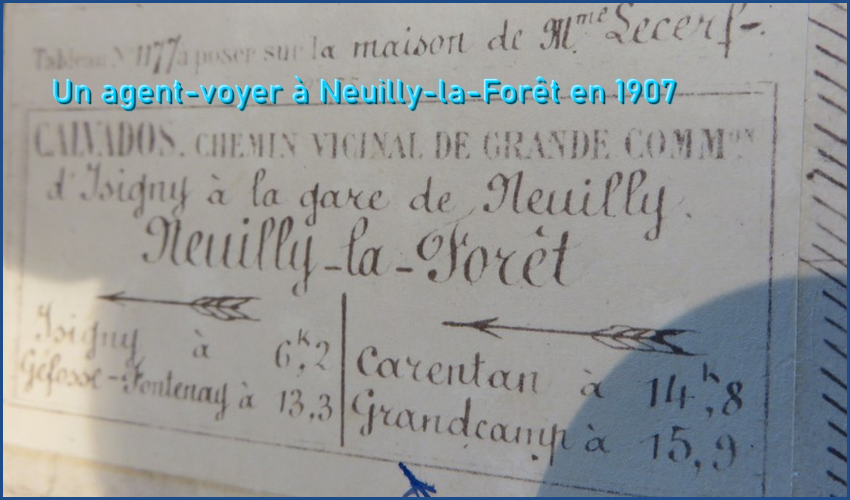 Tableau N° 1177 à poser sur la maison de Mme Lecerf-.
Un agent-voyer à Neuilly-la-Forêt en 1907
CALVADOS. CHEMIN VICINAL DE GRANDE COMMON
d'Isigny à la gare de Neuilly.
Neuilly-la-Forêt
Isigny à 6k,2
Géfosse-Fontenay à 13,3
Carentan à 14k,8
Grandcamp à 15,9